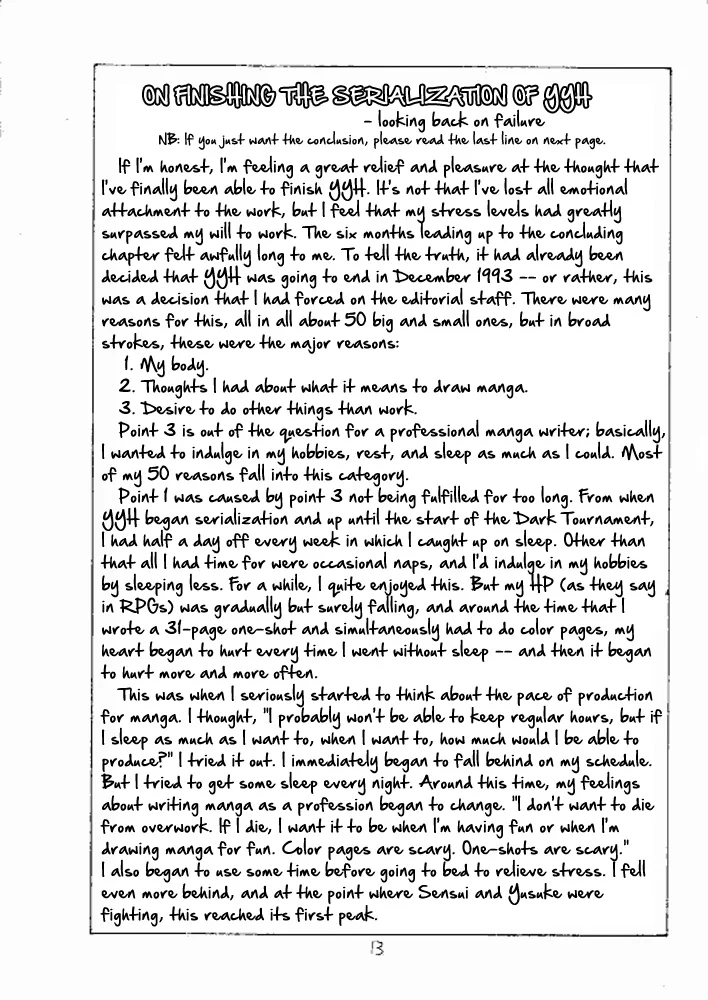 ON FINISHING THE SERIALIZATION OF YYH
- looking back on failure
NB: If you just want the conclusion, please read the last line on next page.
If I'm honest, I'm feeling a great relief and pleasure at the thought that
I've finally been able to finish YYH. It's not that I've lost all emotional
attachment to the work, but I feel that my stress levels had greatly
surpassed my will to work. The six months leading up to the concluding
chapter felt awfully long to me. To tell the truth, it had already been
decided that YYH was going to end in December 1993 -- or rather, this
was a decision that I had forced on the editorial staff. There were many
reasons for this, all in all about 50 big and small ones, but in broad
strokes, these were the major reasons:
1. My body.
2. Thoughts I had about what it means to draw manga.
3. Desire to do other things than work.
Point 3 is out of the question for a professional manga writer; basically,
I wanted to indulge in my hobbies, rest, and sleep as much as I could. Most
of my 50 reasons fall into this category.
Point 1 was caused by point 3 not being fulfilled for too long. From when
YYH began serialization and up until the start of the Dark Tournament,
I had half a day off every week in which I caught up on sleep. Other than
that all I had time for were occasional naps, and I'd indulge in my hobbies
by sleeping less. For a while, I quite enjoyed this. But my HP (as they say
in RPGs) was gradually but surely falling, and around the time that I
wrote a 31-page one-shot and simultaneously had to do color pages, my
heart began to hurt every time I went without sleep -- and then it began
to hurt more and more often.
This was when I seriously started to think about the pace of production
for manga. I thought, "I probably won't be able to keep regular hours, but if
I sleep as much as I want to, when I want to, how much would I be able to
produce?" I tried it out. I immediately began to fall behind on my schedule.
But I tried to get some sleep every night. Around this time, my feelings
about writing manga as a profession began to change. "I don't want to die
from overwork. If I die, I want it to be when I'm having fun or when I'm
drawing manga for fun. Color pages are scary. One-shots are scary."
I also began to use some time before going to bed to relieve stress. I fell
even more behind, and at the point where Sensui and Yusuke were
fighting, this reached its first peak.
13